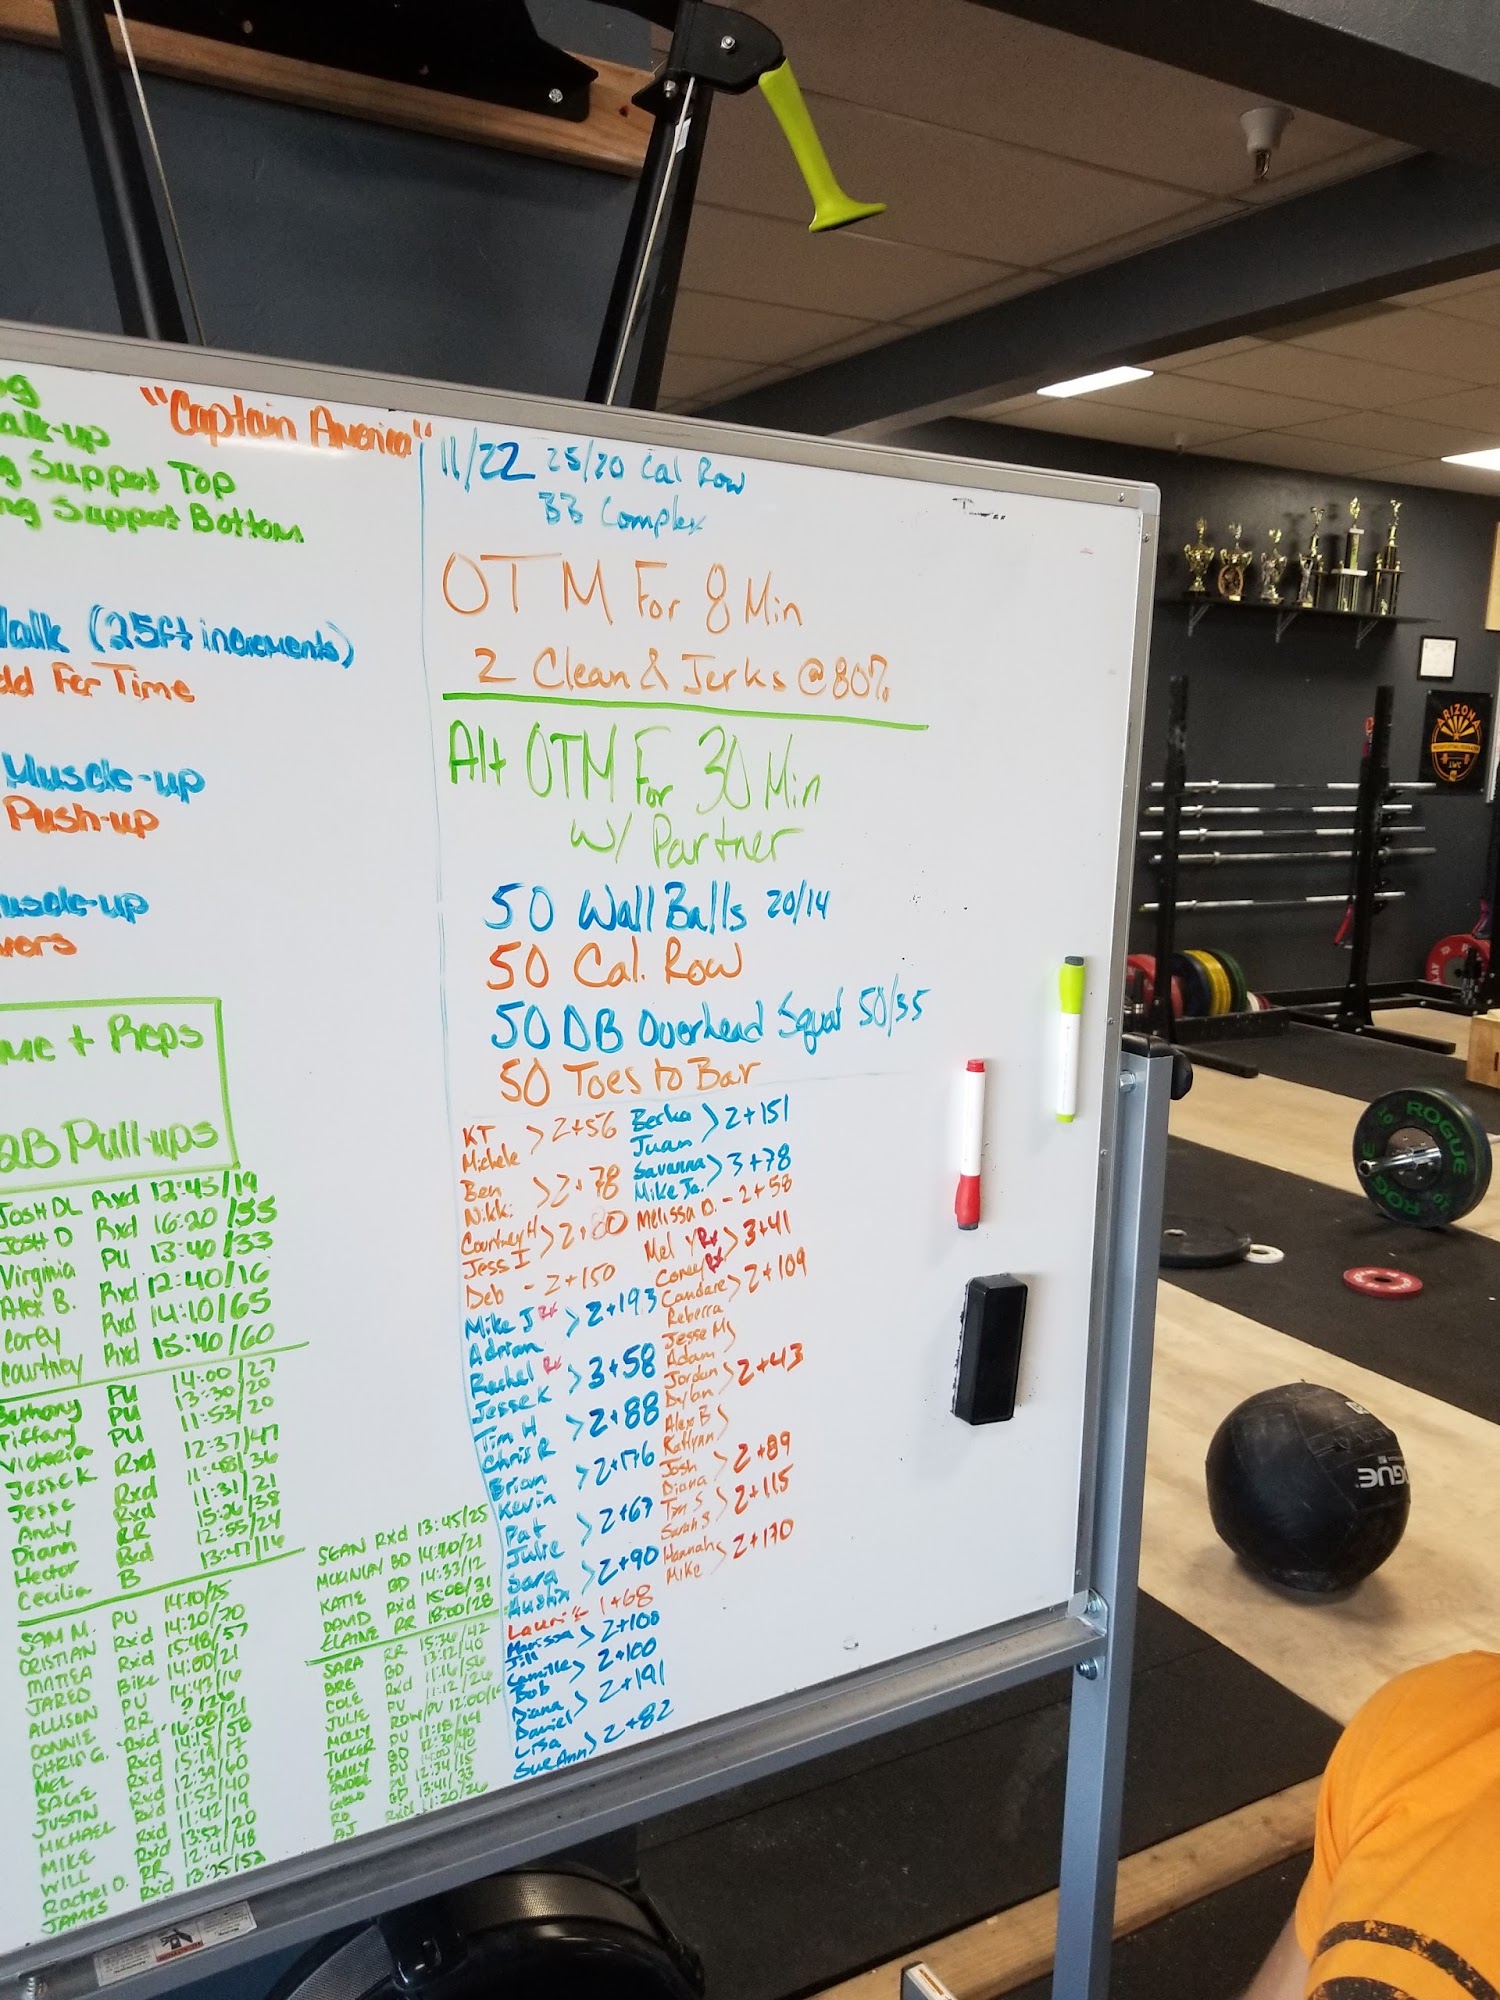 "Captain America"
Support Top
Support Bottom
(25ft increments)
For Time
Muscle-up
Push-up
+ Reps
Pull-ups
JOSH DL Rxd 12:45/19
JOSH D Rxd 16:20/55
Virginia PU 13:40/33
Alex B. Rxd 12:40/16
Corey Rxd 14:10/65
Courtney Rxd 15:40/60
Bethany PU 14:00/27
Tiffany PU 13:30/20
Victoria PU 11:53/20
Jesse K Rxd 12:37/47
Jesse Rxd 11:48/36
Andy Rxd 11:31/21
Diann RR 15:26/38
Hector Rxd 12:55/24
Cecilia B 13:47/16
SAM M. PU 14:10/25
CRISTIAN Rxd 14:20/70
MATTEA Rxd 15:48/57
JARED Bike 14:00/21
ALLISON PU 14:43/16
CONNIE RR
CHRIS G. Rxd
MEL Rxd
SAGE Rxd
JUSTIN Rxd
MICHAEL Rxd
MIKE Rxd
WILL Rxd 13:57/20
Rachel O. RR 12:41/48
JAMES Rxd 13:25/52
SEAN Rxd 13:45/25
MCKINLAY BD
KATIE BD 14:33/12
DAVID Rxd 15:08/31
ELAINE RR 18:00/28
SARA RR 15:36/42
BRE BD 13:12/40
COLE Rxd
JULIE PU
MOLLY
TUCKER
EMILY
AJ Rxd 11:20/26
11/22 25/20 Cal Row
BB Complex
OTM For 8 Min
2 Clean & Jerks @ 80%
Alt OTM For 30 Min
w/ Partner
50 Wall Balls 20/14
50 Cal. Row
50 DB Overhead Squat 50/35
50 Toes to Bar
KT
Michele > 2+56
Ben
Nikki > 2+78
Courtney H
Jess I > 2+80
Deb - 2+150
Mike J Rx
Adrian > 2+193
Rachel Rx
Jesse K > 3+58
Tim H
Chris R > 2+88
Brian
Kevin > 2+176
Pat
Julie > 2+67
Sara
Austin > 2+90
Laurie 1+68
Marissa
Jill > 2+100
Camille
Bob > 2+100
Diana
Daniel > 2+191
Lisa
Sue Ann > 2+82
Becka
Juan > 2+151
Savanna
Mike Ja. > 3+78
Melissa O. - 2+58
Mel Y Rx
Corey Rx > 3+41
Candace
Rebecca > 2+109
Jesse M
Adam
Jordan
Dylan > 2+43
Alex B
Kaitlynn
Josh
Diana > 2+89
Tim S
Sarah S > 2+115
Hannah
Mike > 2+170
ARIZONA
ROGUE
ROGUE